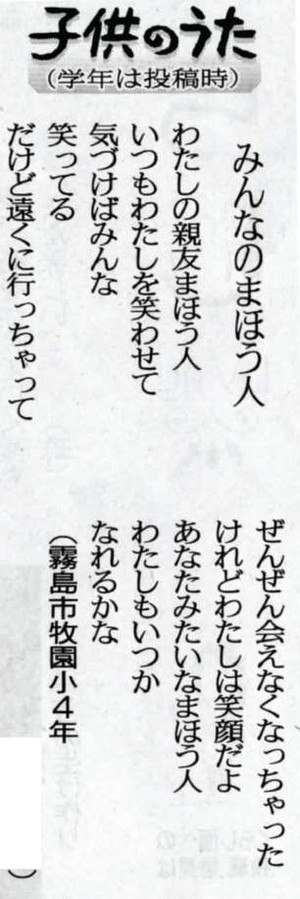 子供のうた
(学年は投稿時)
みんなのまほう人
わたしの親友まほう人
いつもわたしを笑わせて
気づけばみんな
笑ってる
だけど遠くに行っちゃって
ぜんぜん会えなくなっちゃった
けれどわたしは笑顔だよ
あなたみたいなまほう人
わたしもいつか
なれるかな
(霧島市牧園小4年
)